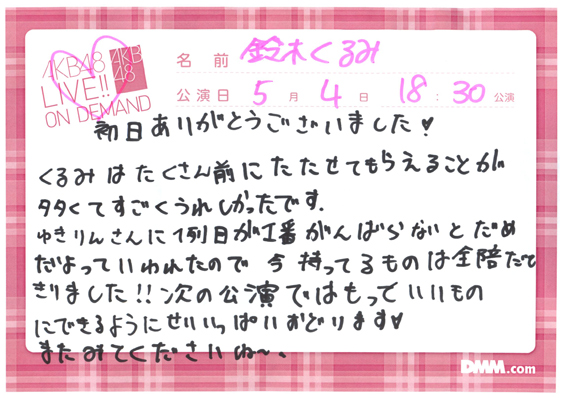 AKB48
LIVE!!
ON DEMAND
AKB
48
名前 鈴木くるみ
公演日 5月4日 18:30公演
初日ありがとうございました♥
くるみはたくさん前にたたせてもらえることが
多くてすごくうれしかったです.
ゆきりんさんに初日が1番がんばらないとだめ
だよっていわれたので今持ってるものは全部だし
きりました!!次の公演ではもっといいもの
にできるようにせいいっぱいおどります♥
またみてくださいね〜.
DMM.com